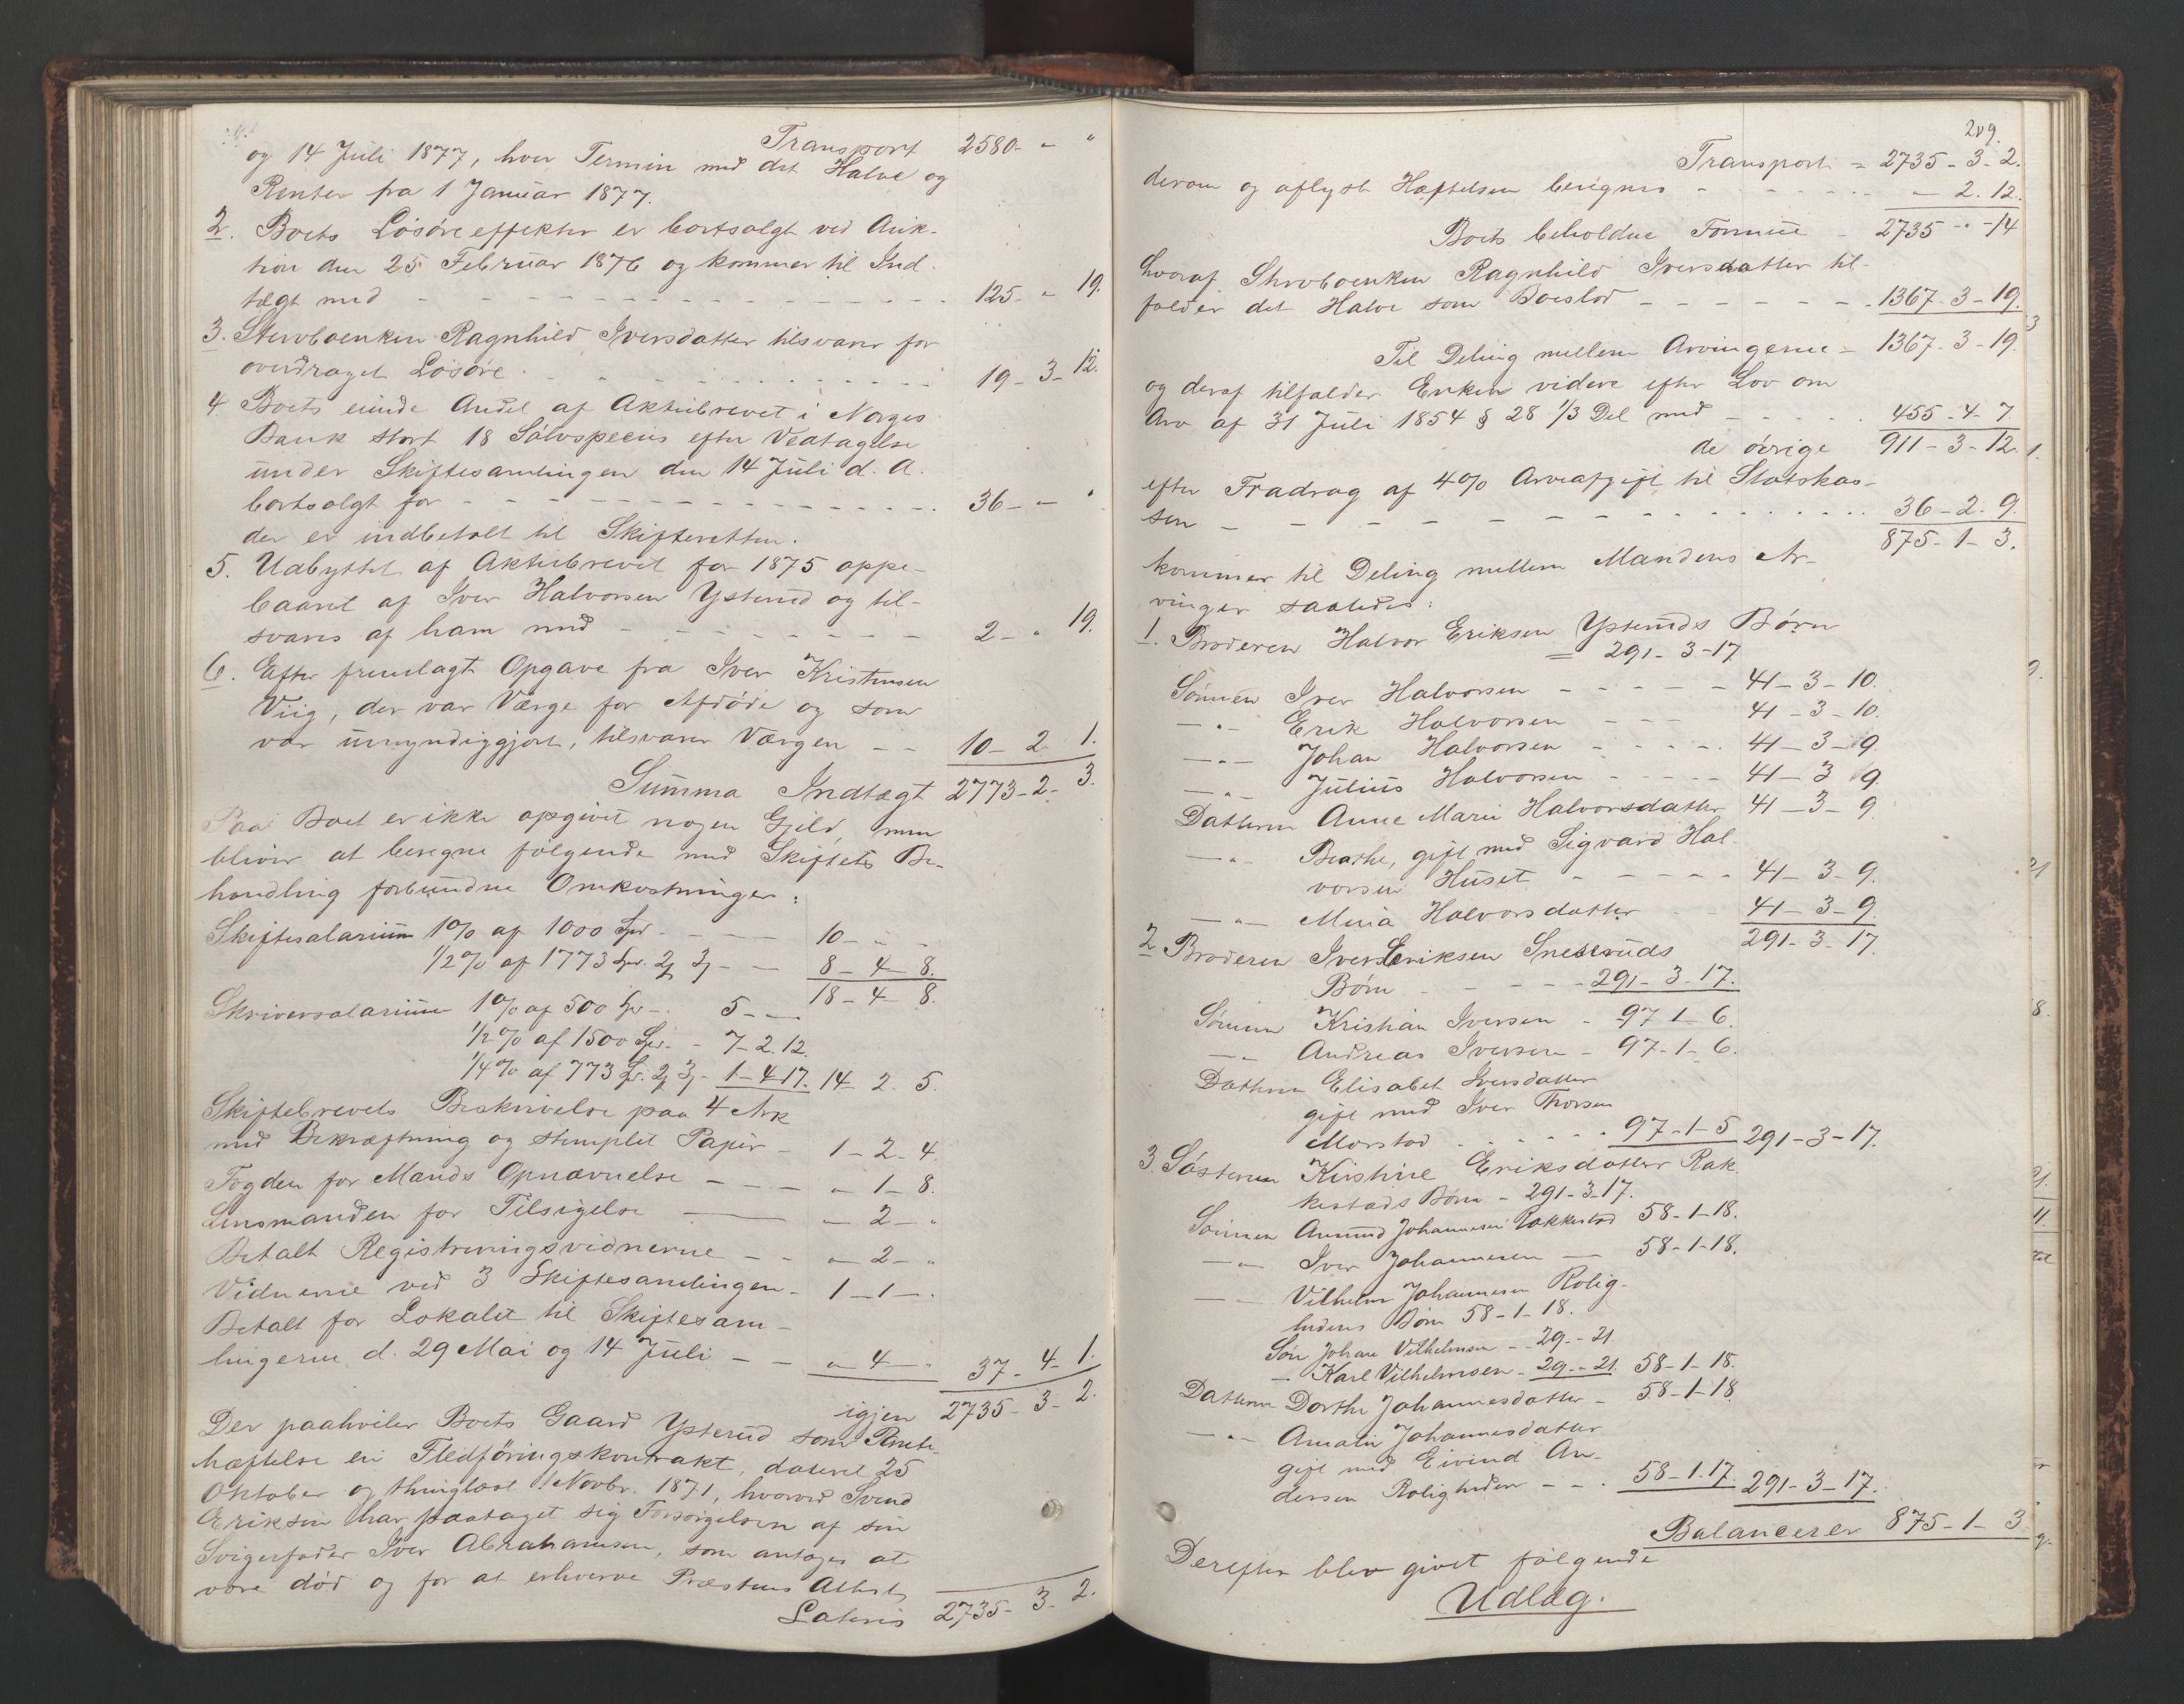 Transport 2580 - "
og 14 Juli 1877, hver Termin med det Halve og
Renter fra 1 Januar 1877.
2. Boets Løsøreeffekter er bortsolgt ved Auk-
tion den 25 Februar 1876 og kommer til Ind-
tægt med - - - 125 - " 19.
3. Stervboenken Ragnhild Iversdatter tilsvarer for
overdraget Løsøre - - - 19 - 3 - 12.
4. Boets eiende Andel af Aktiebrevet i Norges
Bank stort 18 Sølvspecies efter Vedtagelse
under Skiftesamlingen den 14 Juli d. A.
bortsolgt for - - - 36 - - "
der er indbetalt til Skifteretten.
5. Udbyttet af Aktiebrevet for 1875 oppe-
baaret af Iver Halvorsen Ysterud og til-
svares af ham med - - - 2 - " 19.
6. Efter fremlagt Opgave fra Iver Kristensen
Viig, der var Værge for Afdøde og som
var umyndiggjort, tilsvarer Værgen - - 10 - 2 1.
Summa Indtægt 2773 - 2 - 3.
Paa Boet er ikke opgivet nogen Gjeld, men
bliver at beregne følgende med Skiftets Be-
handling forbundne Omkostninger:
Skiftesalarium 1% af 1000 Spd. - - 10 - " "
1/2% af 1773 Spd. 2 3 - - 8 - 4 - 8.
18 - 4 - 8.
Skriversalarium 1% af 500 Spd - 5 - -
1/2% af 1500 Spd. - 7 - 2. 12.
1/4% af 773 Spd. 2 3 - 1 - 4 17. 14 - 2. 5.
Skiftebrevets Beskrivelse paa 4 Ark
med Bekræftning og stemplet Papir - 1 - 2 - 4.
Fogden for Mænds Opnævnelse - - - " - 1 - 8.
Lensmanden for Tilsigelse - - " - 2 - "
Betalt Registreringsvidnerne - - " - 2 - "
Vidnerne ved 3 Skiftesamlingen - 1 - 1 - "
Betalt for Lokalet til Skiftesam-
lingerne d. 29 Mai og 14 Juli - - " - 4 - " 37 - 4 - 1.
igjen 2735 - 3 - 2.
Der paahviler Boets Gaard Ysterud som Pante-
hæftelse en Fledføringskontrakt, dateret 25
Oktober og thinglæst 1 Novbr. 1871, hvorved Svend
Eriksen har paataget sig Forsørgelsen af sin
Svigerfader Iver Abrahamsen, som antages at
være død og for at erhverve Præstens Attest
Lateris 2735 - 3 - 2.
209.
Transport = 2735 - 3 - 2.
derom og aflyst Hæftelsen beregnes - - - - 2. 12.
Boets beholdne Formue - 2735 - " - 14
hvoraf Stervboenken Ragnhild Iversdatter til-
falder det Halve som Boeslod - - - 1367 - 3 - 19.
Til Deling mellem Arvingerne - 1367 - 3 - 19.
og deraf tilfalder Enken videre efter Lov om
Arv af 31 Juli 1854 § 28 1/3 Del med - - - 455 - 4 - 7
de øvrige 911 - 3 - 12.
efter Fradrag af 4% Arveafgift til Statskas-
sen - - - 36 - 2. 9.
875 - 1 - 3.
kommer til Deling mellem Mandens Ar-
vinger saaledes:
1. Broderen Halvor Eriksen Ysteruds Børn
= 291 - 3 - 17
Sønnen Iver Halvorsen - - - 41 - 3 - 10.
- " - Erik Halvorsen - - - 41 - 3 - 10.
- " - Johan Halvorsen - - - 41 - 3 - 9.
- " - Julius Halvorsen - - - 41 - 3 9.
Datteren Anne Marie Halvorsdatter 41 - 3 - 9.
- " - Beathe, gift med Sigvard Hal-
vorsen Huset - - - 41 - 3 - 9.
- " - Mina Halvorsdatter - - 41 - 3 - 9
291 - 3 - 17.
2 Broderen Iver Eriksen Sneseruds
Børn - - - 291 - 3 - 17.
Sønnen Kristian Iversen - 97 1 - 6.
- " - Andreas Iversen - 97 - 1 - 6.
Datteren Elisabet Iversdatter
gift med Iver Thorsen
Morstad - - - 97 - 1 - 5 291 - 3 - 17.
3. Søsteren Kirstine Eriksdatter Rak-
kestads Børn - 291 - 3 - 17.
Sønnen Amund Johannesen Rakkestad 58 - 1 - 18.
- " - Iver Johannesen - 58 - 1 - 18.
- " - Vilhelm Johannesen Rolig-
hedens Børn 58 - 1 - 18.
Søn Johan Vilhelmsen - 29 - " 21
- Karl Vilhelmsen - 29 - " 21. 58 - 1 - 18.
Datteren Dorthe Johannesdatter - 58 - 1 - 18
- " - Amalie Johannesdatter
gift med Eivind An-
dersen Roligheden - - 58 - 1. 17. 291 - 3 - 17.
Balancerer 875 - 1 - 3
Derefter blev givet følgende
Udlæg.